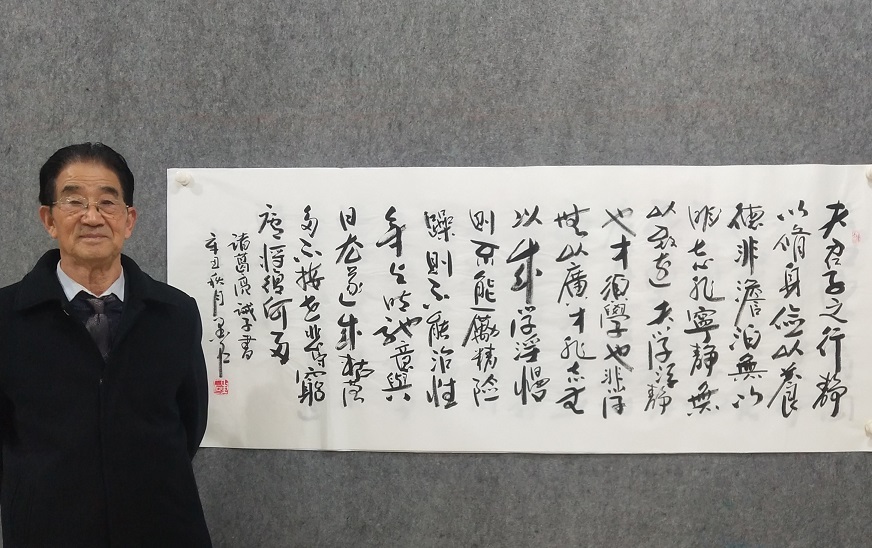 夫君子之行靜
以脩身儉以養
德非澹泊無以
明志非寧靜無
以致遠夫学須靜
也才須學也非学
無以廣才非志無
以成学慢
则不能勵精险
躁则不能治性
年与时馳意與
日去遂成枯落
多不接世悲守窮
廬将復何及
諸葛亮诫子書
辛丑秋月